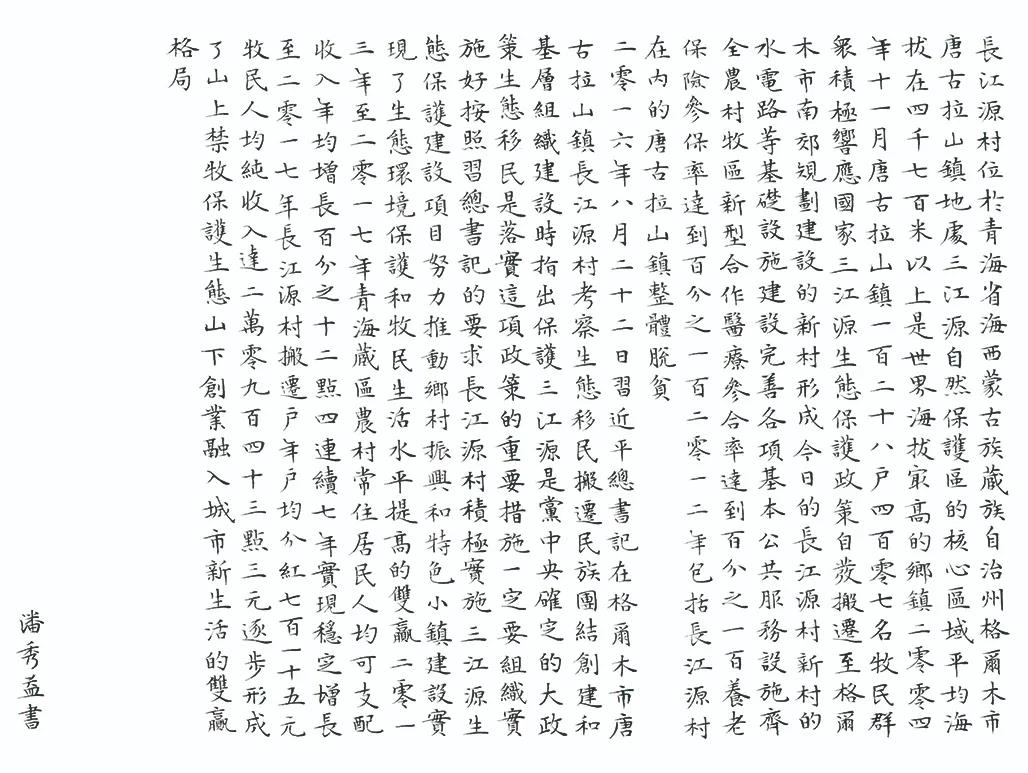 長江源村位於青海省海西蒙古族藏族自治州格爾木市
唐古拉山鎮地處三江源自然保護區的核心區域平均海
拔在四千七百米以上是世界海拔最高的鄉鎮二零零四
年十一月唐古拉山鎮一百二十八戶四百零七名牧民群
眾積極響應國家三江源生態保護政策自發搬遷至格爾
木市南郊規劃建設的新村形成今日的長江源村新村的
水電路等基礎設施建設完善各項基本公共服務設施齊
全農村牧區新型合作醫療參合率達到百分之一百養老
保險參保率達到百分之一百二零一二年包括長江源村
在內的唐古拉山鎮整體脫貧
二零一六年八月二十二日習近平總書記在格爾木市唐
古拉山鎮長江源村考察生態移民搬遷民族團結創建和
基層組織建設時指出保護三江源是黨中央確定的大政
策生態移民是落實這項政策的重要措施一定要組織實
施好按照習總書記的要求長江源村積極實施三江源生
態保護建設項目努力推動鄉村振興和特色小鎮建設實
現了生態環境保護和牧民生活水平提高的雙贏二零一
三年至二零一七年青海藏區農村常住居民人均可支配
收入年均增長百分之十二點四連續七年實現穩定增長
至二零一七年長江源村搬遷戶年戶均分紅七百一十五元
牧民人均純收入達二萬零九百四十三點三元逐步形成
了山上禁牧保護生態山下創業融入城市新生活的雙贏
格局
潘秀益書